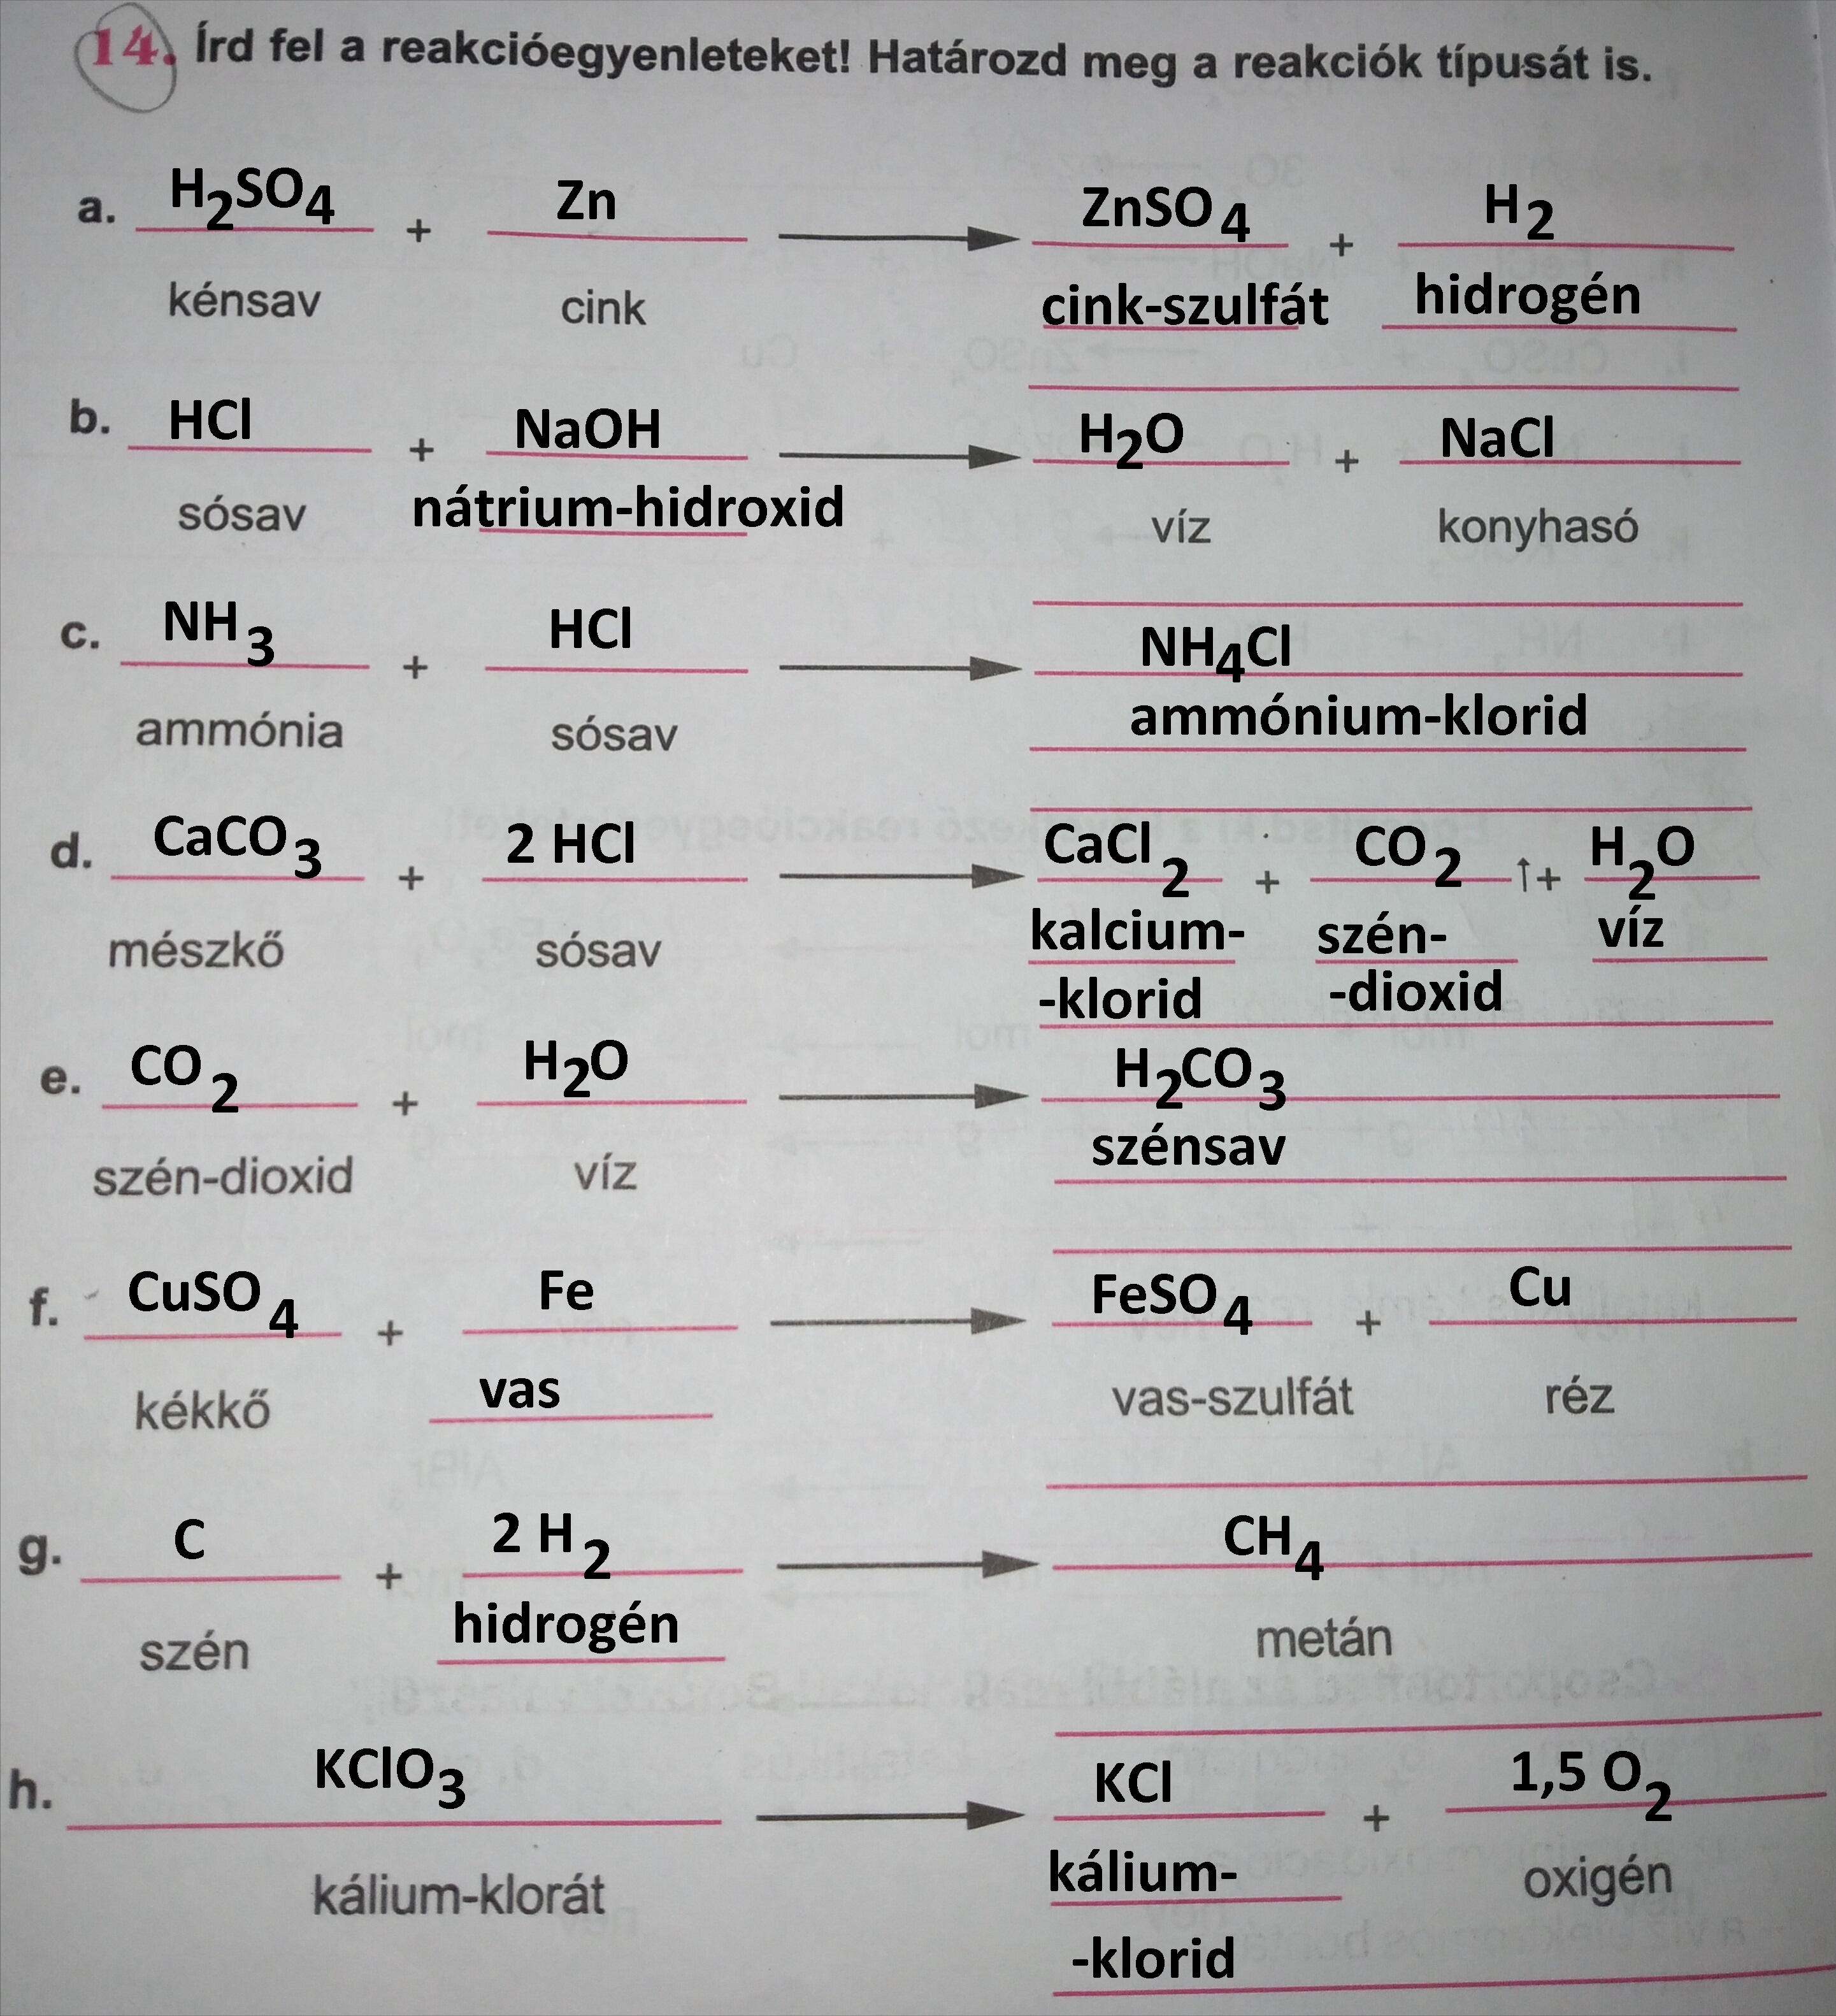 14. Írd fel a reakcióegyenleteket! Határozd meg a reakciók típusát is.
a. H2SO4 + Zn ZnSO4 + H2
kénsav cink cink-szulfát hidrogén
b. HCl + NaOH H2O + NaCl
sósav nátrium-hidroxid víz konyhasó
c. NH3 + HCl NH4Cl
ammónia sósav ammónium-klorid
d. CaCO3 + 2 HCl CaCl2 + CO2 ↑+ H2O
mészkő sósav kalcium- szén- víz
-klorid -dioxid
e. CO2 + H2O H2CO3
szén-dioxid víz szénsav
f. CuSO4 + Fe FeSO4 + Cu
kékkő vas vas-szulfát réz
g. C + 2 H2 CH4
szén hidrogén metán
h. KClO3 KCl + 1,5 O2
kálium-klorát kálium- oxigén
-klorid